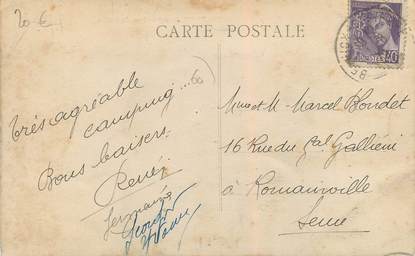 20 €
CARTE POSTALE
40
Très agréable
camping...
Bons baisers.
René.
Germaine
Mme et M. Marcel Blondet
16 Rue du Gal Galliéni
à Romainville
Seine